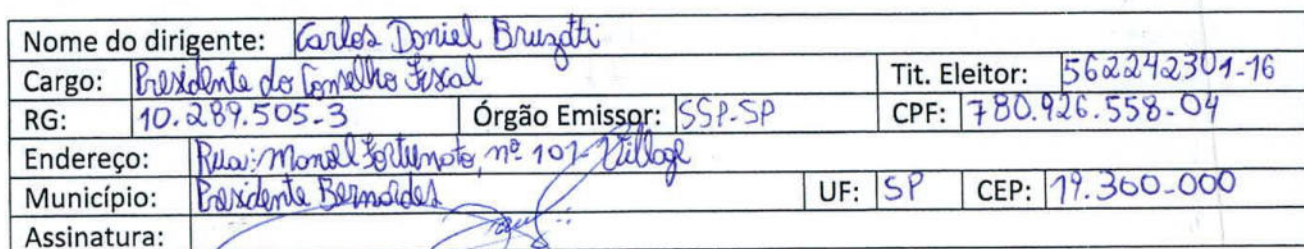 Nome do dirigente: Carlos Daniel Bruzatti
Cargo: Presidente do Conselho Fiscal Tit. Eleitor: 562242301-16
RG: 10.289.505-3 Órgão Emissor: SSP-SP CPF: 780.926.558-04
Endereço: Rua: Manoel Fortunato, nº 101- Village
Município: Presidente Bernardes UF: SP CEP: 19.300-000
Assinatura: